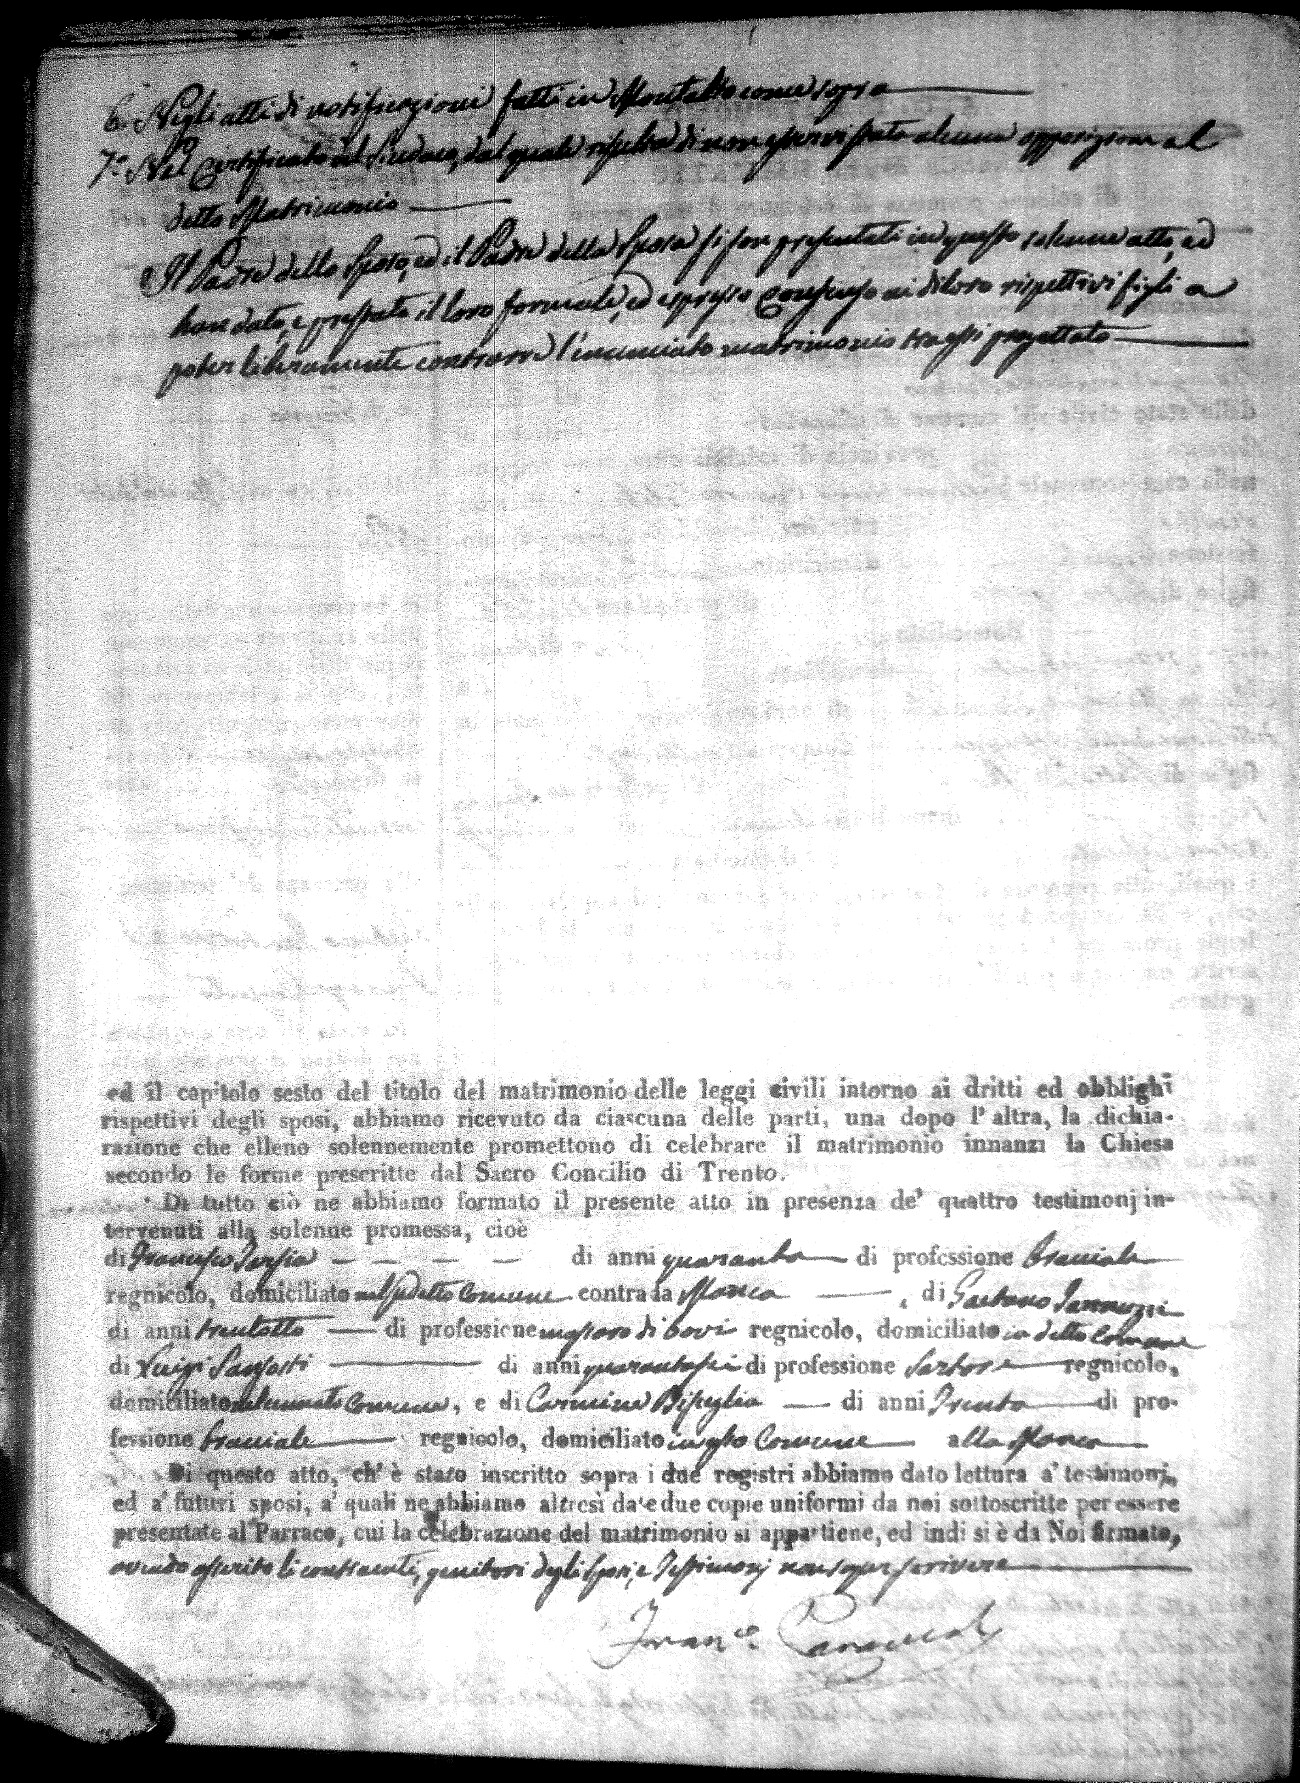 6.° Negli atti di notificazioni fatti in Montalto come sopra
7.° Nel Certificato del Sindaco, dal quale risulta di non esservi stata alcuna opposizione al
detto Matrimonio
Il Padre dello Sposo, ed il Padre della Sposa si son presentati in questo solenne atto, ed
han dato, e prestato il loro formale, ed espresso Consenso ai di loro rispettivi figli a
poter liberamente contrarre l'enunciato matrimonio tra essi progettato
ed il capitolo sesto del titolo del matrimonio delle leggi civili intorno ai dritti ed obblighi
rispettivi degli sposi, abbiamo ricevuto da ciascuna delle parti, una dopo l'altra, la dichia-
razione che elleno solennemente promettono di celebrare il matrimonio innanzi la Chiesa
secondo le forme prescritte dal Sacro Concilio di Trento.
Di tutto ciò ne abbiamo formato il presente atto in presenza de' quattro testimonj in-
tervenuti alla solenne promessa, cioè
di Francesco di anni quaranta di professione Bracciale
regnicolo, domiciliato nel detto Comune contrada Manca, di Gaetano Iannuzzi
di anni trentotto di professione regnicolo, domiciliato in detto Comune
di Luigi Sansosti di anni quarantasei di professione Sartore regnicolo,
domiciliato Comune, e di Carmine Bisciglia di anni Trenta di pro-
fessione Bracciale regnicolo, domiciliato in questo Comune alla Manca
Di questo atto, ch'è stato inscritto sopra i due registri abbiamo dato lettura a' testimonj,
ed a' futuri sposi, a' quali ne abbiamo altresì date due copie uniformi da noi sottoscritte per essere
presentate al Parroco, cui la celebrazione del matrimonio si appartiene, ed indi si è da Noi firmato,
avendo asserito li contraenti, genitori degli sposi, e Testimonj non saper scrivere
Fran.co